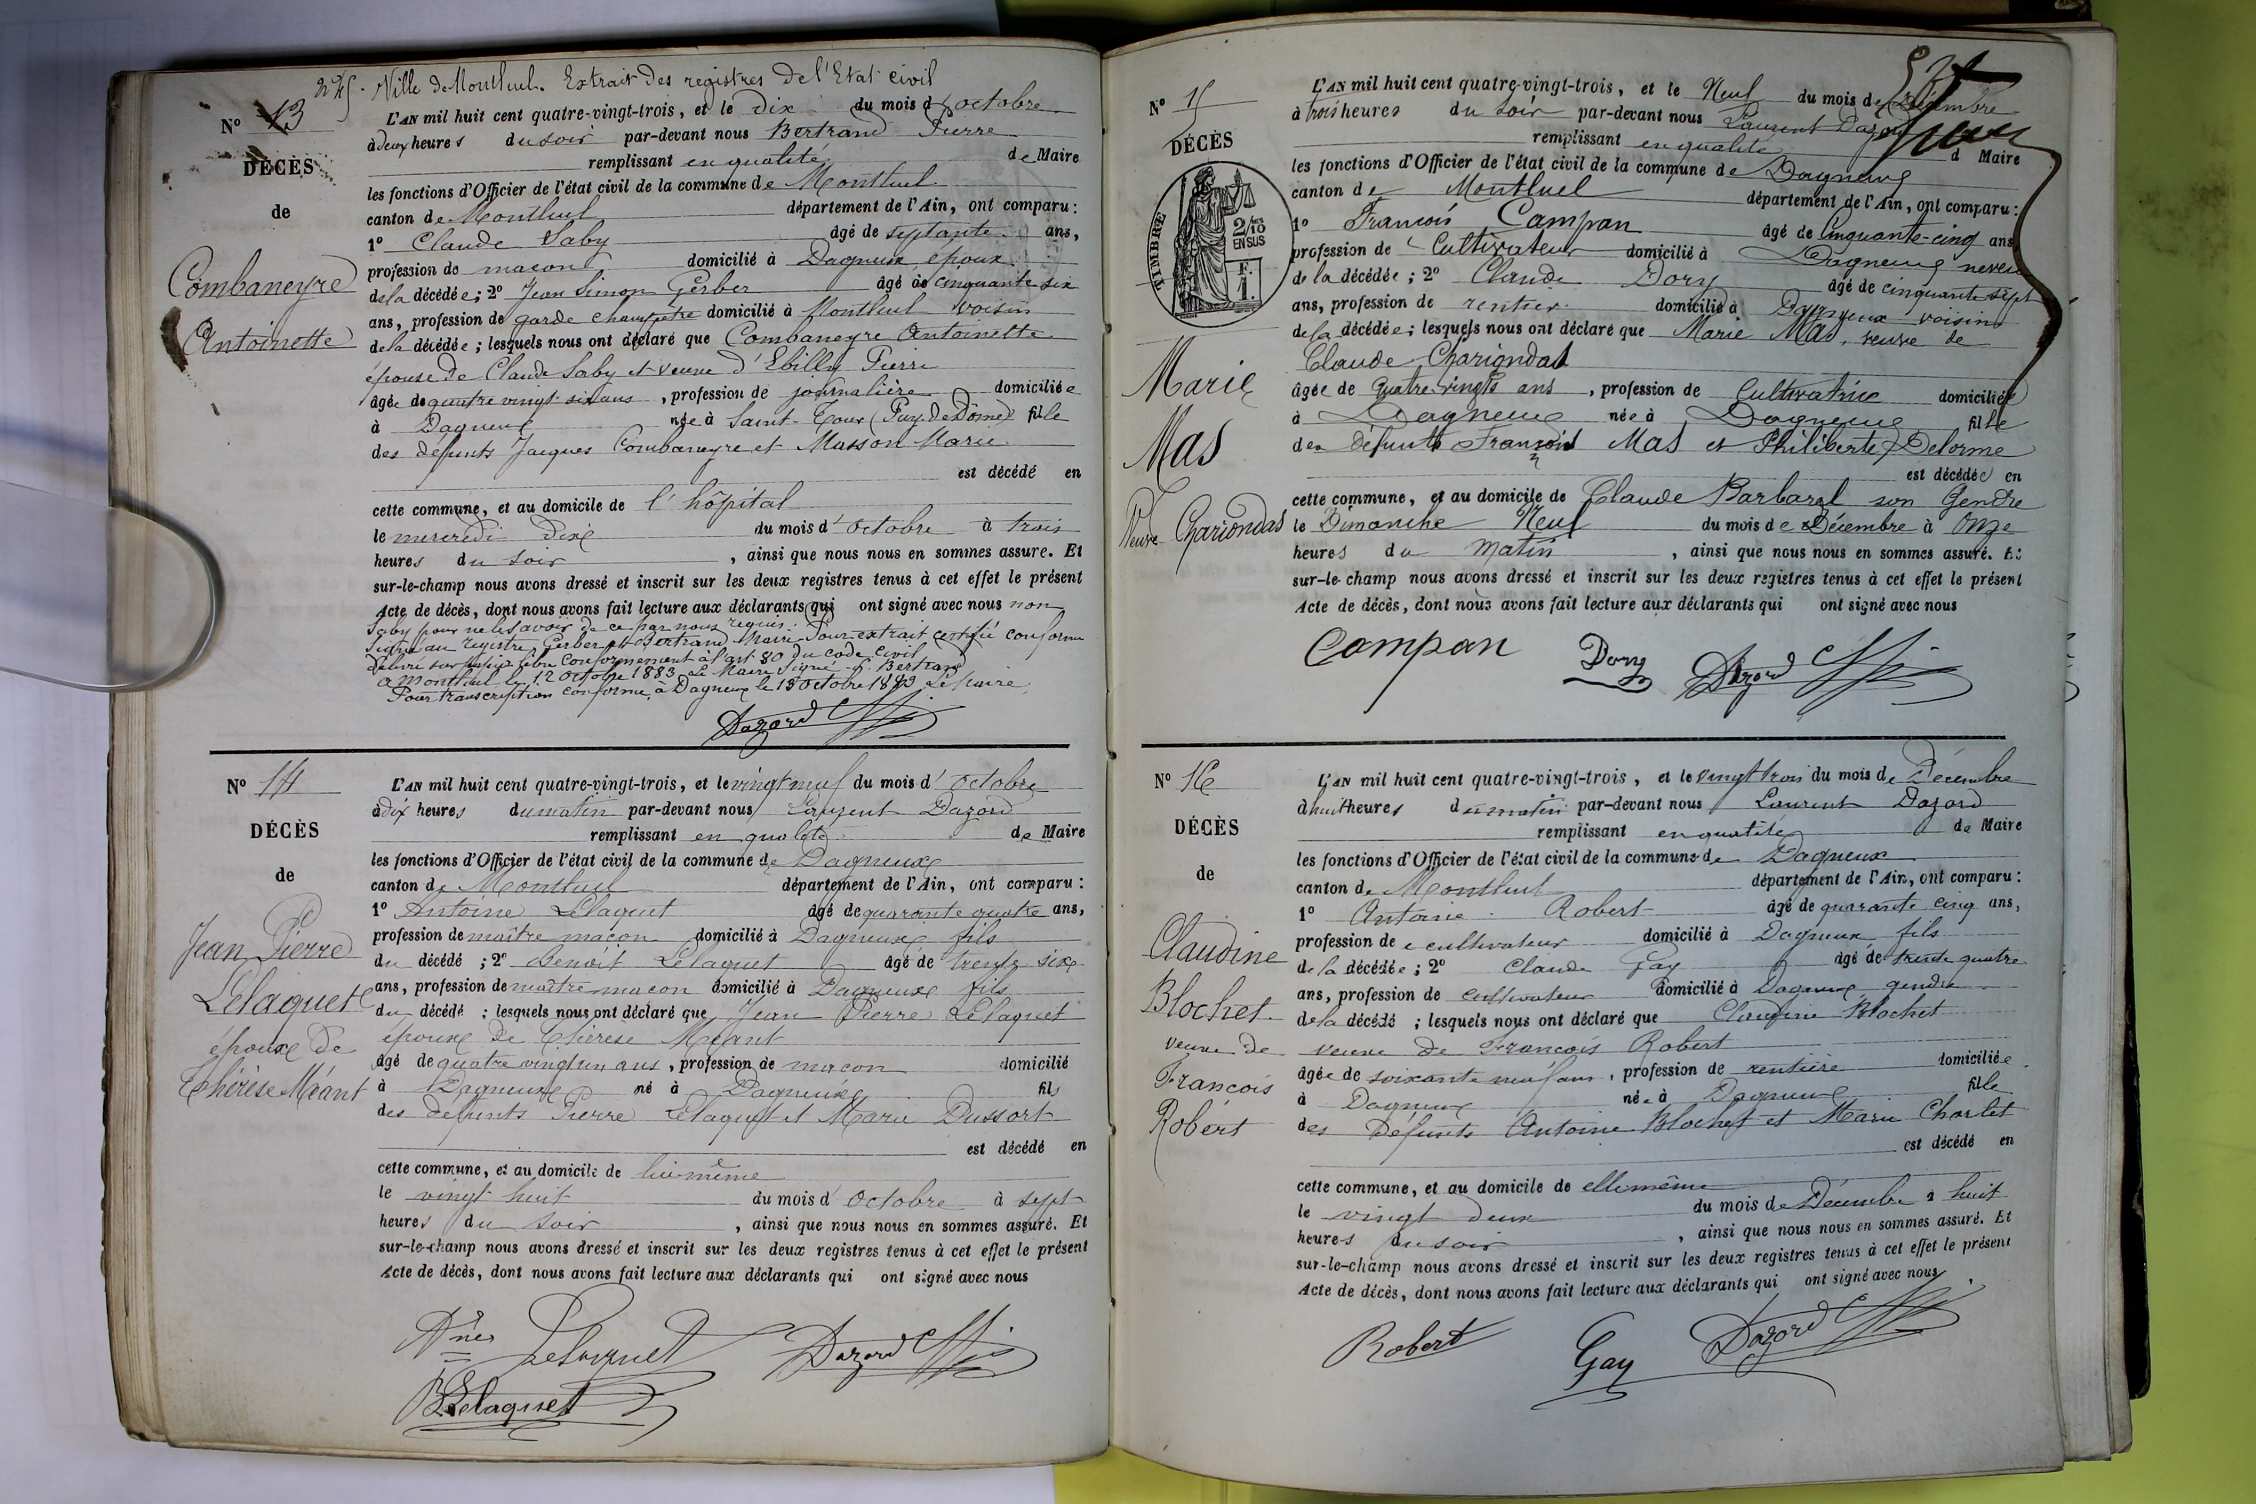 245. Ville de Montluel. Extrait des registres de l'Etat civil
N° 13
DÉCÈS
de
Combaneyre
Antoinette
L'AN mil huit cent quatre-vingt-trois, et le dix du mois d'octobre
à deux heures du soir par-devant nous Bertrand Pierre
remplissant en qualité de Maire
les fonctions d'Officier de l'état civil de la commune de Montluel
canton de Montluel département de l'Ain, ont comparu :
1° Claude Saby âgé de septante ans,
profession de maçon domicilié à Dagneux époux
de la décédée ; 2° Jean Simon Gerber âgé de cinquante six
ans, profession de garde champêtre domicilié à Montluel voisin
de la décédée ; lesquels nous ont déclaré que Combaneyre Antoinette
épouse de Claude Saby et veuve d'Ebilly Pierre
âgée de quatre vingt six ans, profession de journalière domiciliée
à Dagneux née à Saint-Tour (Puy de Dôme) fille
des défunts Jacques Combaneyre et Masson Marie
est décédé en
cette commune, et au domicile de l'hôpital
le mercredi dix du mois d'octobre à trois
heures du soir, ainsi que nous nous en sommes assuré. Et
sur-le-champ nous avons dressé et inscrit sur les deux registres tenus à cet effet le présent
Acte de décès, dont nous avons fait lecture aux déclarants qui ont signé avec nous non
Saby pour ne le savoir de ce par nous requis.
Signé au registre Gerber et Bertrand Maire. Pour extrait certifié conforme
délivré sur papier libre conformément à l'art. 80 du code civil
a Montluel le 12 octobre 1883. Le Maire Signé P. Bertrand
Pour transcription conforme, à Dagneux le 13 octobre 1883 Le Maire
Dazord
N° 14
DÉCÈS
de
Jean Pierre
Lelaquet
époux de
Thérèse Méant
L'AN mil huit cent quatre-vingt-trois, et le vingt neuf du mois d'octobre
à dix heures du matin par-devant nous Laurent Dazord
remplissant en qualité de Maire
les fonctions d'Officier de l'état civil de la commune de Dagneux
canton de Montluel département de l'Ain, ont comparu :
1° Antoine Lelaquet âgé de quarante quatre ans,
profession de maître maçon domicilié à Dagneux fils
du décédé ; 2° Benoit Lelaquet âgé de trente six
ans, profession de maître maçon domicilié à Dagneux fils
du décédé ; lesquels nous ont déclaré que Jean Pierre Lelaquet
époux de Thérèse Méant
âgé de quatre vingt un ans, profession de maçon domicilié
à Dagneux né à Dagneux fils
des défunts Pierre Lelaquet et Marie Dussort
est décédé en
cette commune, et au domicile de lui-même
le vingt huit du mois d'octobre à sept
heures du soir, ainsi que nous nous en sommes assuré. Et
sur-le-champ nous avons dressé et inscrit sur les deux registres tenus à cet effet le présent
Acte de décès, dont nous avons fait lecture aux déclarants qui ont signé avec nous
Lelaquet Dazord
B Lelaquet
N° 15
DÉCÈS
TIMBRE
2/10
EN SUS
F.
1.
Marie
Mas
Veuve Chariondas
L'AN mil huit cent quatre-vingt-trois, et le Neuf du mois de Décembre
à trois heures du soir par-devant nous Laurent Dazord
remplissant en qualité d Maire
les fonctions d'Officier de l'état civil de la commune de Dagneux
canton de Montluel département de l'Ain, ont comparu :
1° François Campan âgé de Cinquante-cinq ans
profession de Cultivateur domicilié à Dagneux neveu
de la décédée ; 2° Claude Dory âgé de cinquante sept
ans, profession de rentier domicilié à Dagneux voisin
de la décédée ; lesquels nous ont déclaré que Marie Mas, veuve de
Claude Charigndas
âgée de Quatre-vingts ans, profession de Cultivatrice domiciliée
à Dagneux née à Dagneux fille
des défunts François Mas et Philiberte Delorme
est décédée en
cette commune, et au domicile de Claude Barbaral son Gendre
le Dimanche Neuf du mois de Décembre à Onze
heures du Matin, ainsi que nous nous en sommes assuré. Et
sur-le-champ nous avons dressé et inscrit sur les deux registres tenus à cet effet le présent
Acte de décès, dont nous avons fait lecture aux déclarants qui ont signé avec nous
Campan Dory Dazord
N° 16
DÉCÈS
de
Claudine
Blochet
veuve de
François
Robert
L'AN mil huit cent quatre-vingt-trois, et le vingt trois du mois de Décembre
à huit heures du matin par-devant nous Laurent Dazord
remplissant en qualité de Maire
les fonctions d'Officier de l'état civil de la commune de Dagneux
canton de Montluel département de l'Ain, ont comparu :
1° Antoine Robert âgé de quarante cinq ans,
profession de cultivateur domicilié à Dagneux fils
de la décédée ; 2° Claude Gay âgé de trente quatre
ans, profession de cultivateur domicilié à Dagneux gendre
de la décédé ; lesquels nous ont déclaré que Claudine Blochet
veuve de François Robert
âgée de soixante neuf ans, profession de rentière domiciliée
à Dagneux née à Dagneux fille
des Défunts Antoine Blochet et Marie Charlet
est décédé en
cette commune, et au domicile de elle même
le vingt deux du mois de Décembre à huit
heures du soir, ainsi que nous nous en sommes assuré. Et
sur-le-champ nous avons dressé et inscrit sur les deux registres tenus à cet effet le présent
Acte de décès, dont nous avons fait lecture aux déclarants qui ont signé avec nous
Robert Gay Dazord